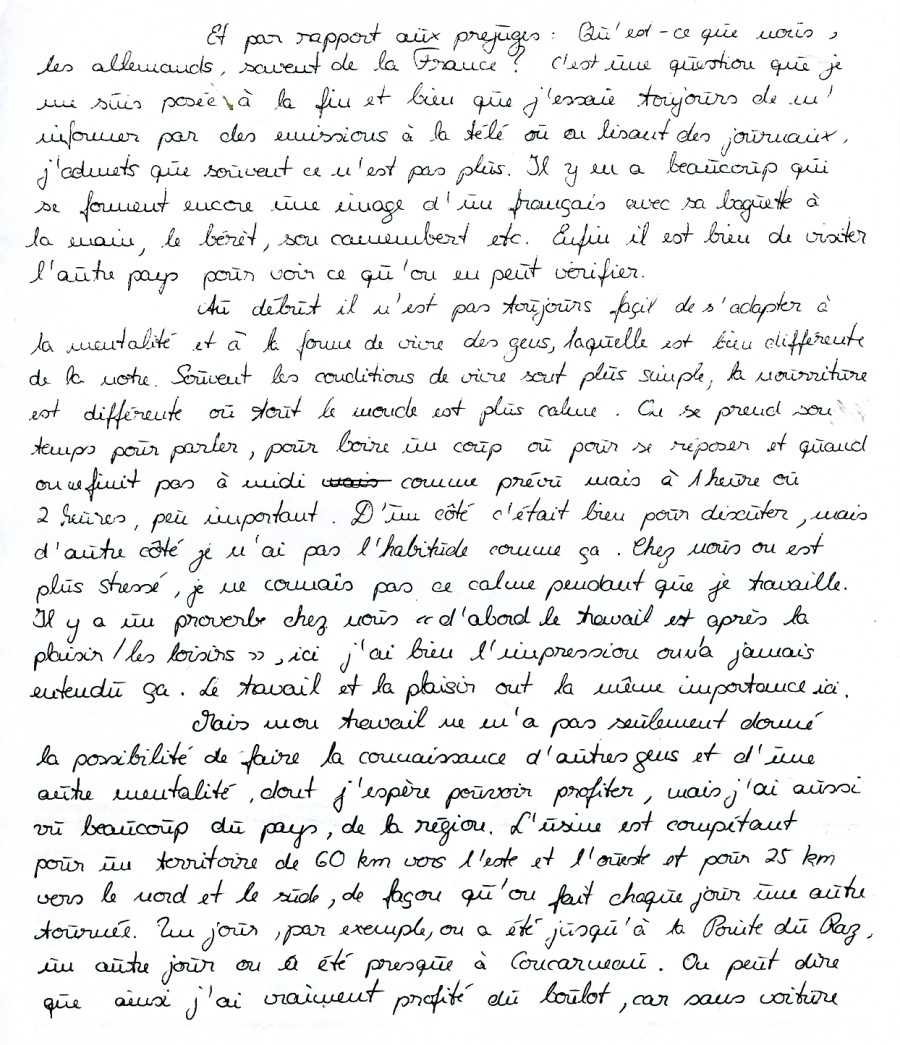 Et par rapport aux préjugés : Qu'est-ce que nous,
les allemands, savent de la France ? C'est une question que je
me suis posée à la fin et bien que j'essaie toujours de m'
informer par des emissions à la télé ou en lisant des journaux,
j'admets que souvent ce n'est pas plus. Il y en a beaucoup qui
se forment encore une image d'un français avec sa baguette à
la main, le bérèt, son camembert etc. Enfin il est bien de visiter
l'autre pays pour voir ce qu'on en peut vérifier.
Au début il n'est pas toujours façil de s'adapter à
la mentalité et à la forme de vivre des gens, laquelle est bien différente
de la notre. Souvent les conditions de vivre sont plus simple, la nourriture
est différente ou tout le monde est plus calme. On se prend son
temps pour parler, pour boire un coup ou pour se reposer et quand
on ne finit pas à midi mais comme prévu mais à 1 heure ou
2 heures, peu important. D'un côté c'était bien pour discuter, mais
d'autre côté je n'ai pas l'habitude comme ça. Chez nous on est
plus stressé, je ne connais pas ce calme pendant que je travaille.
Il y a un proverbe chez nous « d'abord le travail et après la
plaisir / les loisirs », ici j'ai bien l'impression on n'a jamais
entendu ça. Le travail et la plaisir ont la même importance ici.
Mais mon travail ne m'a pas seulement donné
la possibilité de faire la connaissance d'autres gens et d'une
autre mentalité, dont j'espère pouvoir profiter, mais j'ai aussi
vu beaucoup du pays, de la région. L'usine est compétant
pour un territoire de 60 km vers l'este et l'oueste et pour 25 km
vers le nord et le sude, de façon qu'on fait chaque jour une autre
tournée. Un jour, par exemple, on a été jusqu'à la Pointe du Raz,
un autre jour on a été presque à Concarneau. On peut dire
que ainsi j'ai vraiment profité du boulot, car sans voiture